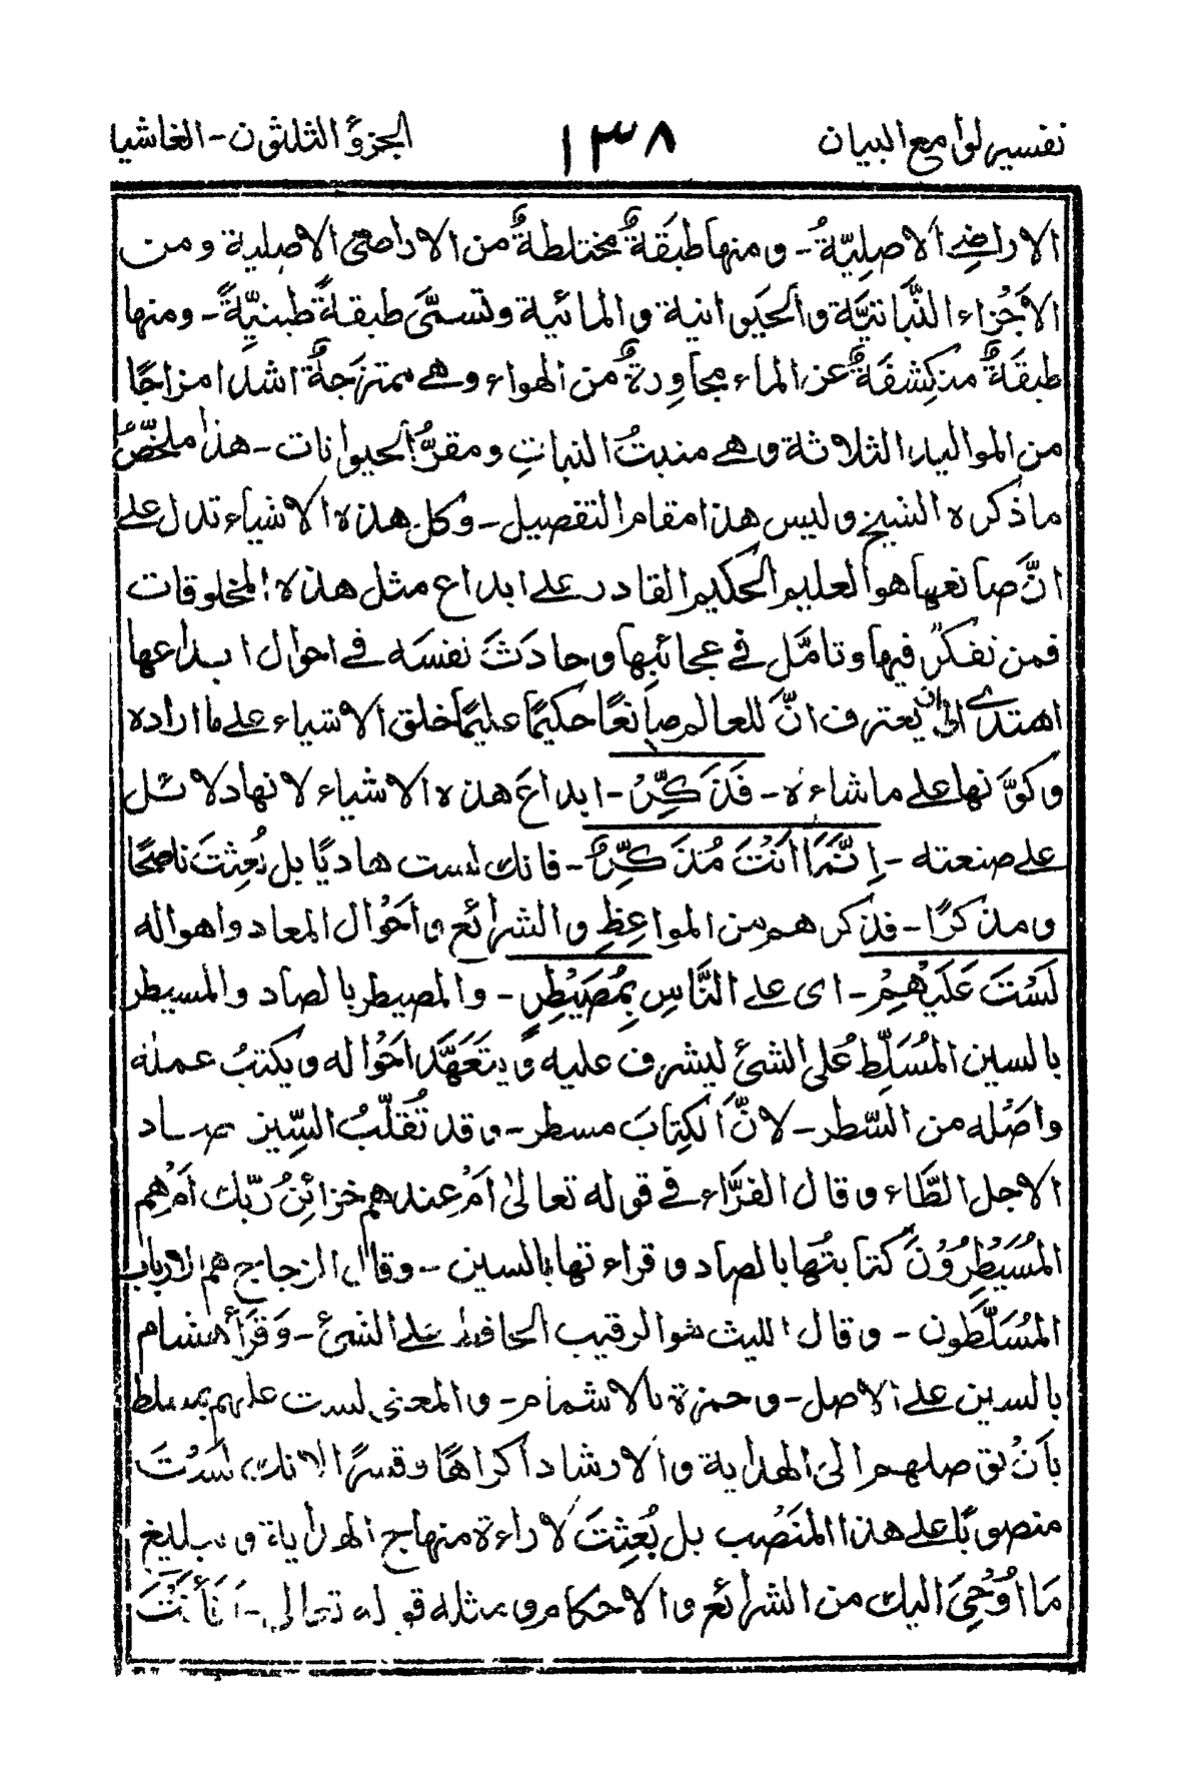 تفسير لوامع البيان ١٣٨ الجزؤ الثلثون - الغاشيا
الاراضى الاصليّةُ - ومنها طبقَةٌ مختلطةٌ من الاراضى الاصلية ومن
الاَجْزاء النَّباتيَّة والحَيوانية والمائية وتسمّى طبقةً طينيّةً - ومنها
طبقَةٌ منكشِفَةٌ عن الماء مجاوِرةٌ من الهواء وهى ممتزَجةٌ اشد امزاجًا
من المواليد الثلاثة وهى منبتُ النباتِ ومقرُّ الحيوانات - هذا ملخّصُ
ما ذكره الشيخ وليس هذا مقام التفصيل - وكل هذه الاشياء تدل على
انَّ صانعها هو العليم الحكيم القادر على ابداع مثل هذه المخلوقات
فمن تفكّر فيها وتامَّل فى عجائبها وحادَثَ نفسَه فى احوال ابداعها
اهتدى الى ان يعترف انَّ للعالم صانعًا حكيمًا عليمًا خلق الاشياء على ما اراده
وكوَّنها على ما شاءه - فَذَكِّرْ - ابداعَ هذه الاشياء لانها دلائل
على صنعته - اِنَّمَا اَنْتَ مُذَكِّرٌ - فانك لست هاديًا بل بُعِثتَ ناصحًا
ومذكرًا - فذكرهم من المواعِظِ والشرائع واَحْوال المعاد واهواله
لَسْتَ عَلَيْهِمْ - اى على النَّاسِ بِمُصَيْطِرٍ - والمصيطر بالصاد والمسيطر
بالسين المُسَلِّط عَلى الشئ ليشرف عليه ويتَعَهَّد احَواله ويكتبُ عمله
واصْله من السَّطر - لانَّ الكِتابَ مسطر - وقد تُقلَّبُ السِّين صاد
الاجل الطَّاء وقال الفرَّاء فى قوله تعالىٰ اَمْ عِندهم خزائِنُ رَبّك اَمْ هم
المُسَيْطِرُوْنَ كتابتُها بالصاد وقراءتها بالسين - وقال الزجاج هم الارباب
المُسَلَّطون - وقال الليث هو الرقيب الحافظ على الشئ - وَقَرَأ هشام
بالسين على الاصل - وحمزة بالاشمام - والمعنى لست عليهم بمسلط
باَنْ توصلهم الى الهداية والارشاد اكراهًا وقسرًا لانك لَسْتَ
منصوبًا على هذا المنَصْب بل بُعِثتَ لاراءة منهاج الهداية وتبليغ
مَا اُوْحِىَ اليك من الشرائع والاحكام ومثله قوله تعالى - اَفَاَنْتَ